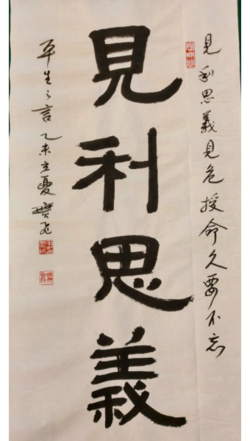 見利思義見危授命久要不忘
見利思義
平生之言乙未立夏